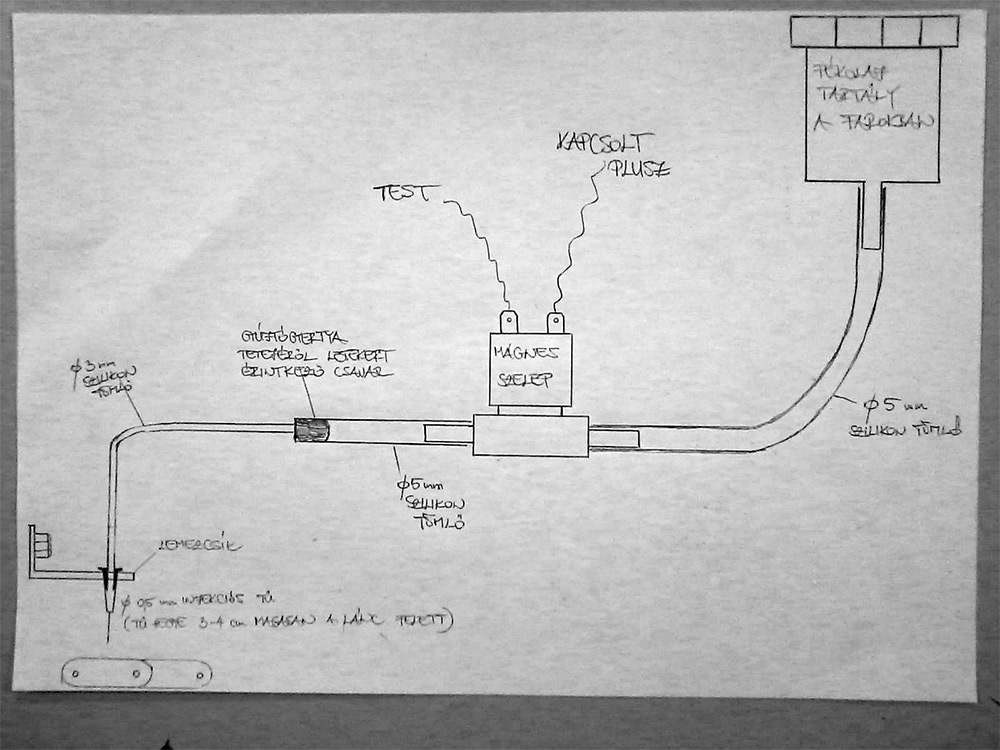 TARTÁLY
A FAROKBAN
KAPCSOLT
PLUSZ
TEST
MÁGNES
SZELEP
GYÚJTÓGYERTYA
TETEJÉRŐL LETEKERT
ÉRINTKEZŐ CSAVAR
ϕ3mm
SZILIKON
TÖMLŐ
ϕ5mm
SZILIKON TÖMLŐ
ϕ5mm
SZILIKON
TÖMLŐ
LEMEZCSÍK
ϕ 0,5 mm INJEKCIÓS TŰ
(TŰ HEGYE 3-4 cm MAGASAN A LÁNC FELETT)